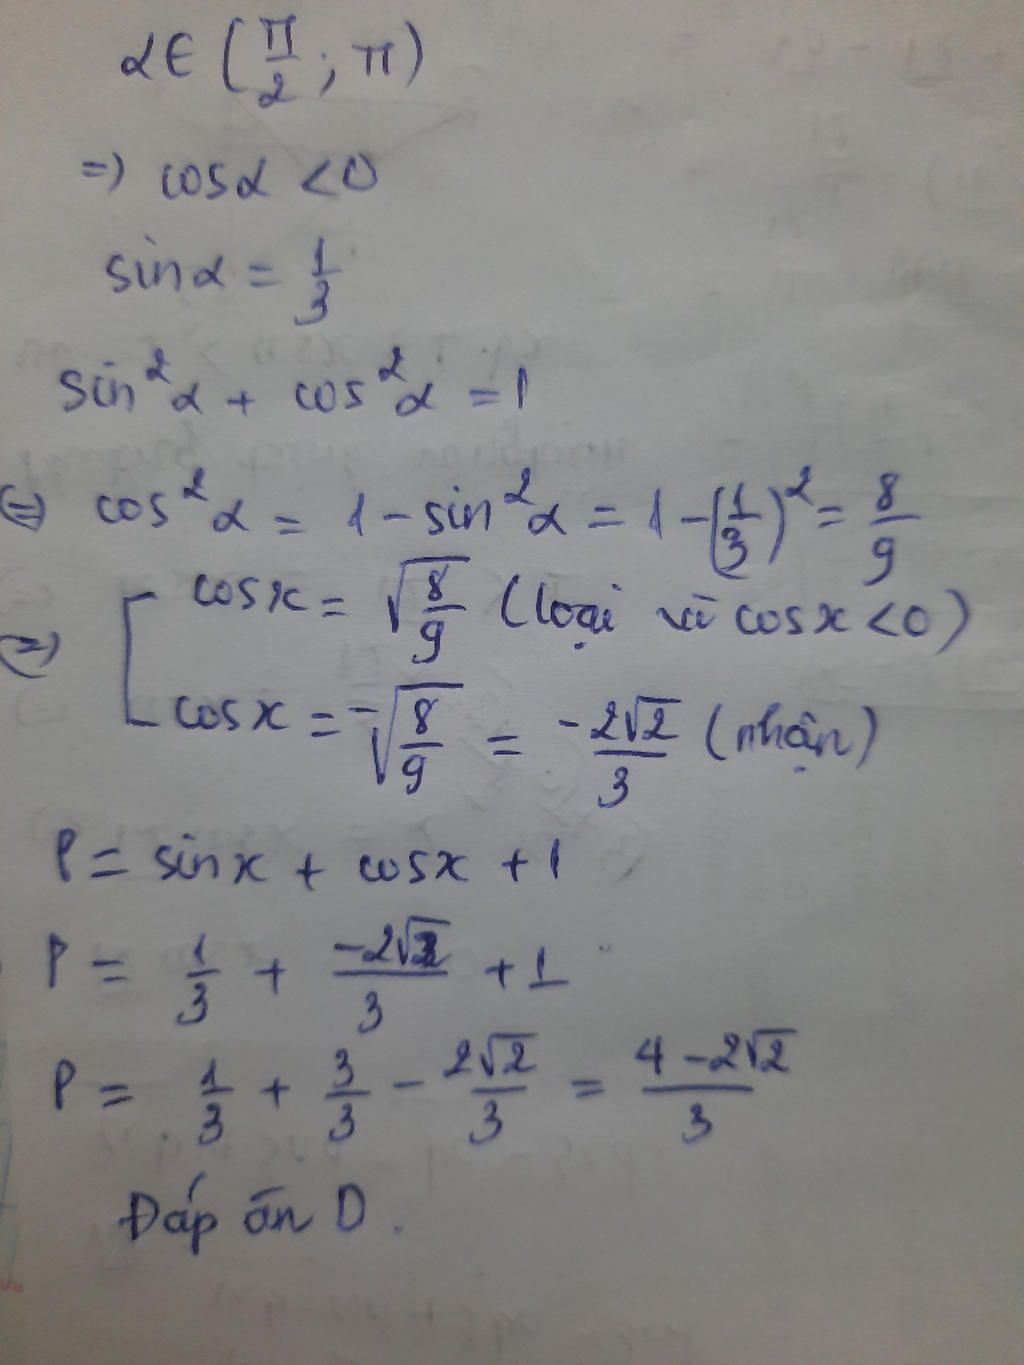 α∈ (π/2 ; π)
=) cosα < 0
sinα = 1/3
sin²α + cos²α = 1
(=) cos²α = 1 - sin²α = 1 - (1/3)² = 8/9
cosx = √(8/9) (loại vì cosx < 0)
(=)
cosx = -√(8/9) = -2√2/3 (nhận)
P = sinx + cosx + 1
P = 1/3 + -2√2/3 + 1
P = 1/3 + 3/3 - 2√2/3 = 4 - 2√2/3
Đáp án D.